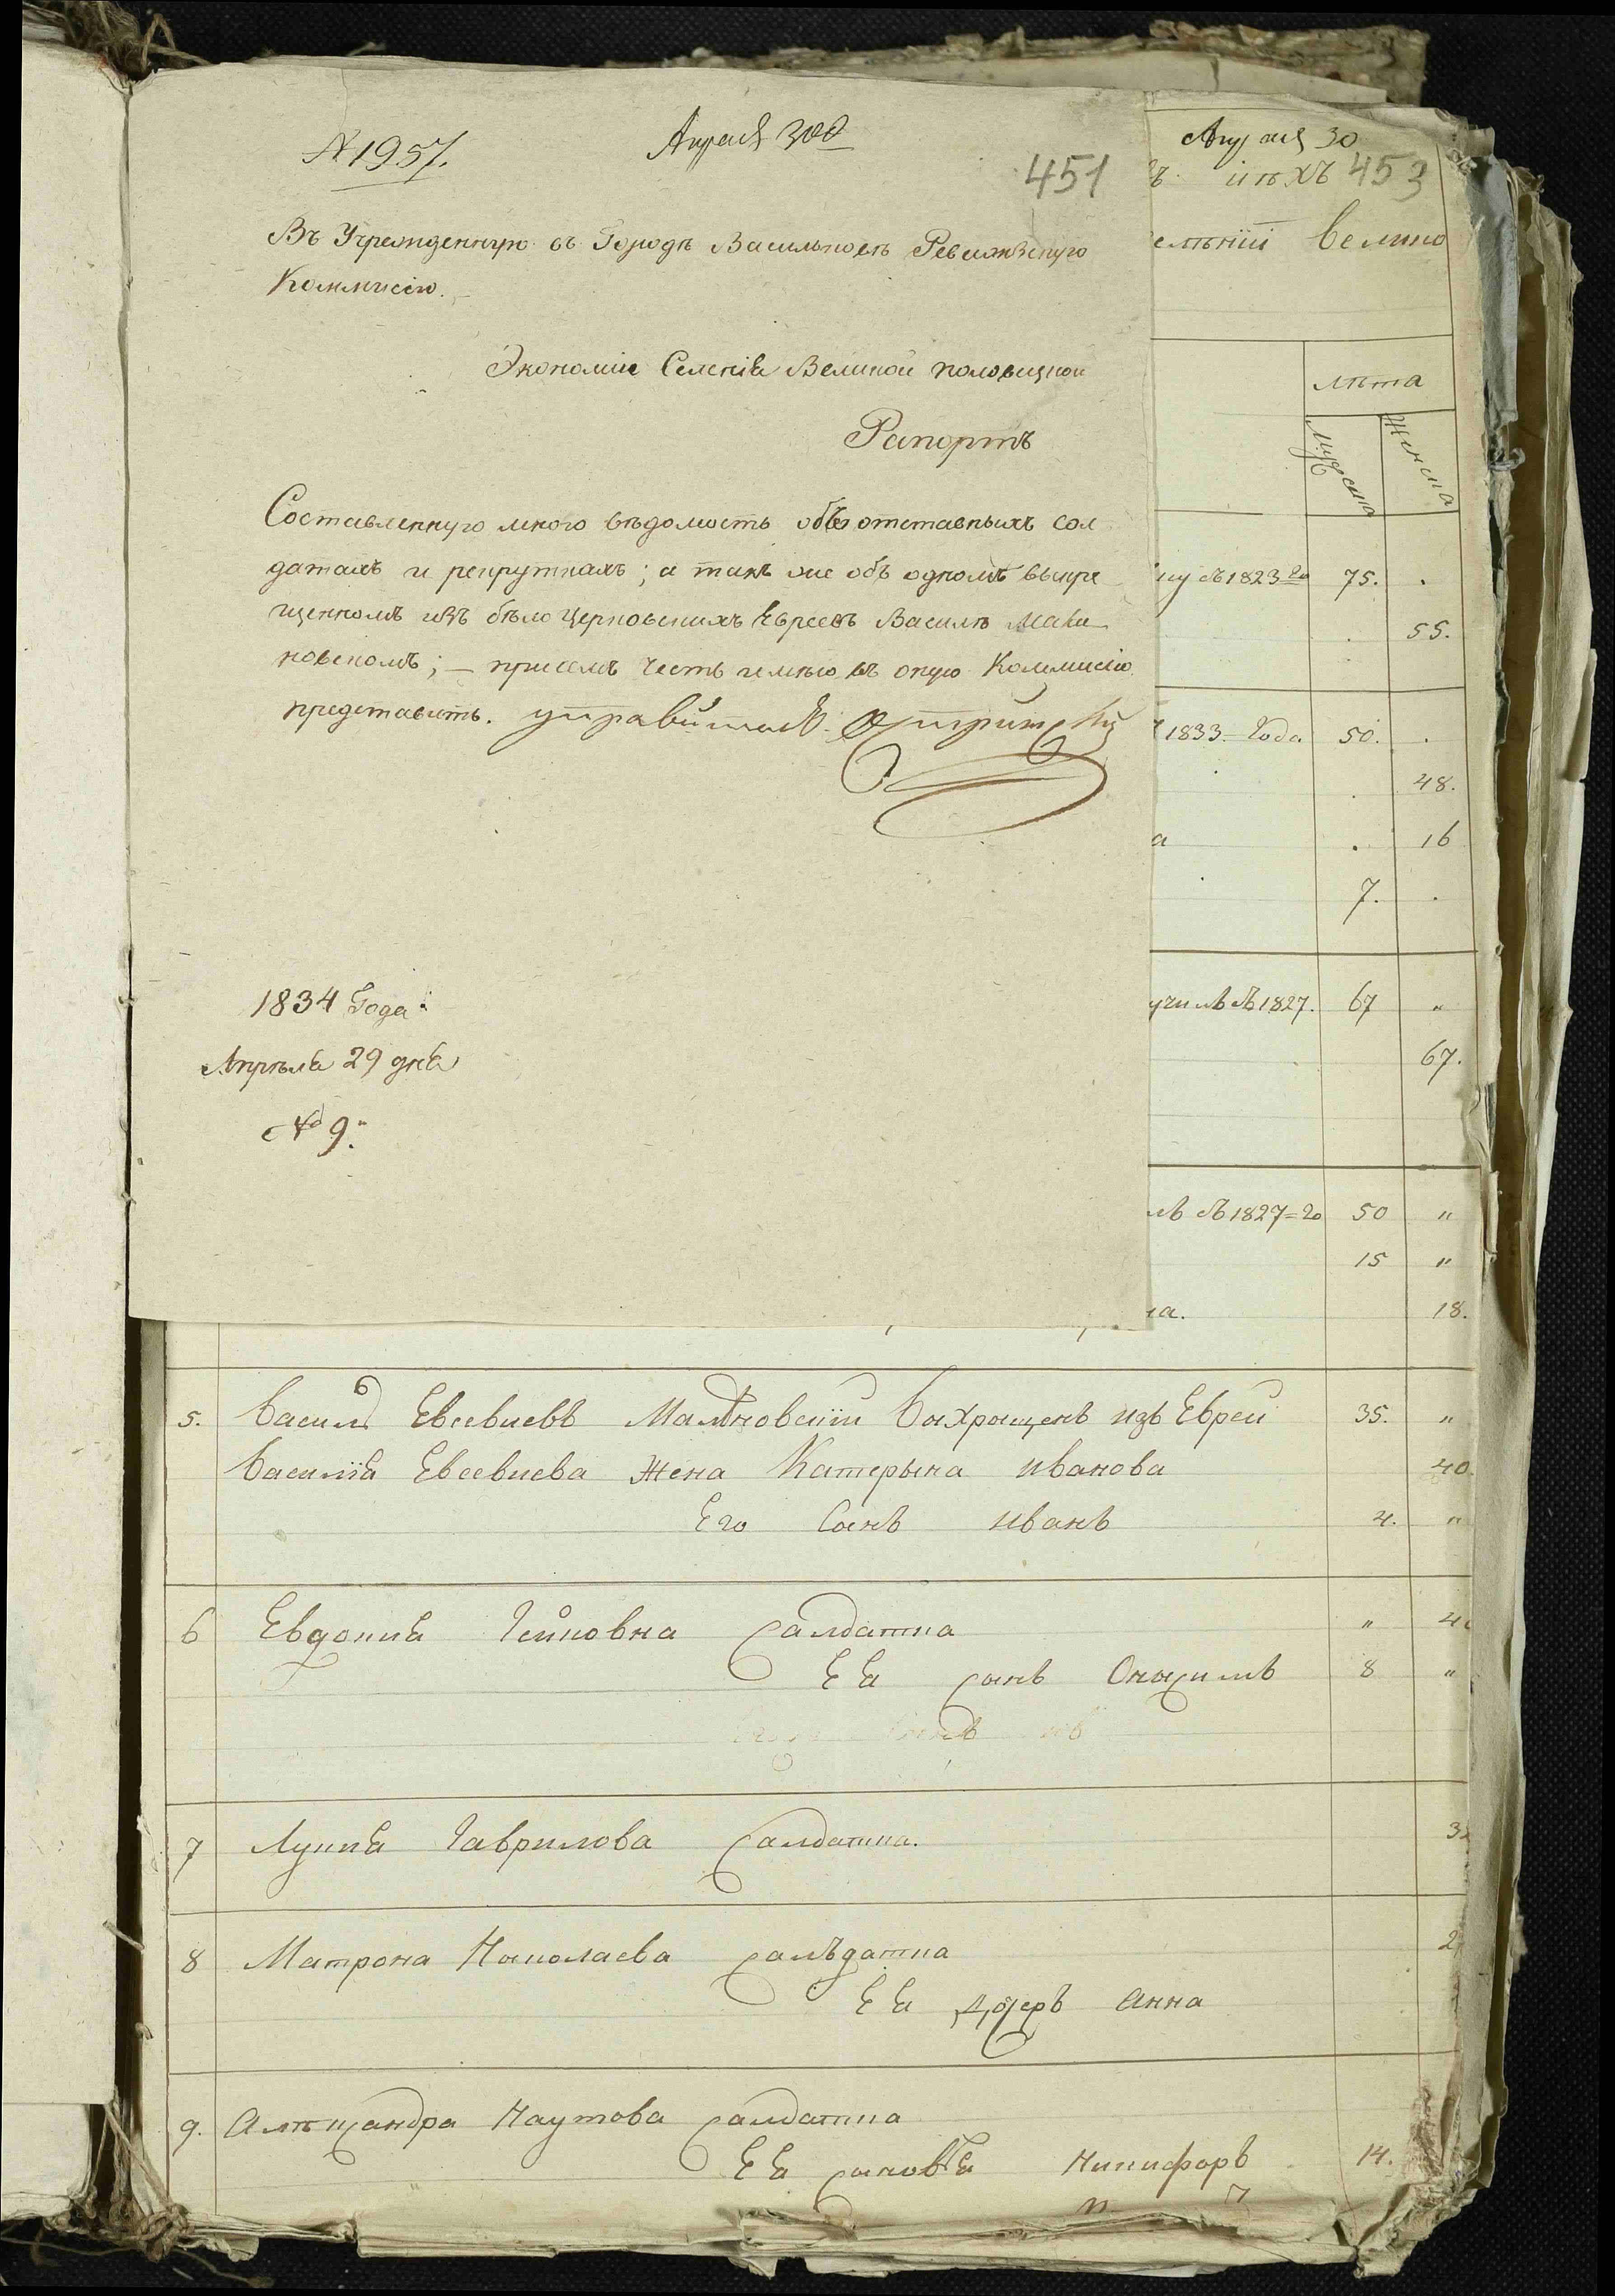 № 1957.
Апреля 30д
451
Въ Учрежденную въ Городѣ Васильковѣ Ревизскую
Коммисію.
Экономіи Селенія Великой половецкой
Рапортъ
Составленную мною вѣдомость объ отставныхъ сол
датахъ и рекруткахъ; а такъ же объ одномъ выкре
щенномъ изъ бѣло церковскихъ Евреевъ Василѣ Мали
новскомъ; – присемъ честь имѣю въ оную Коммисію
представить. управитель
1834 Года
Апрѣля 29 дня
№ 9.
Апреля 30
453
ъ ихъ
Велико
лѣта
Мужеска
Женска
ну съ 1823 го 75.
55.
1833 Года 50.
48.
а 16
7.
училъ съ 1827. 67 "
67.
лъ съ 1827=го 50 "
15 "
на. 18.
5. Василь Евсевиевъ Малиновскій Выхрищенъ изъ Еврей 35. "
Василия Евсевиева Жена Катерына иванова 40.
Его Сынъ иванъ 4. "
6 Евдокия Салдатка " 4
Ея сынъ 8 "
сынъ
7 Лукия Гаврилова Салдатка. 3
8 Матрона Николаева салъдатка 2
Ея дочеръ Анна
9. Алѣксандра Наумова салдатка
Ея сыновья Никифоръ 14.